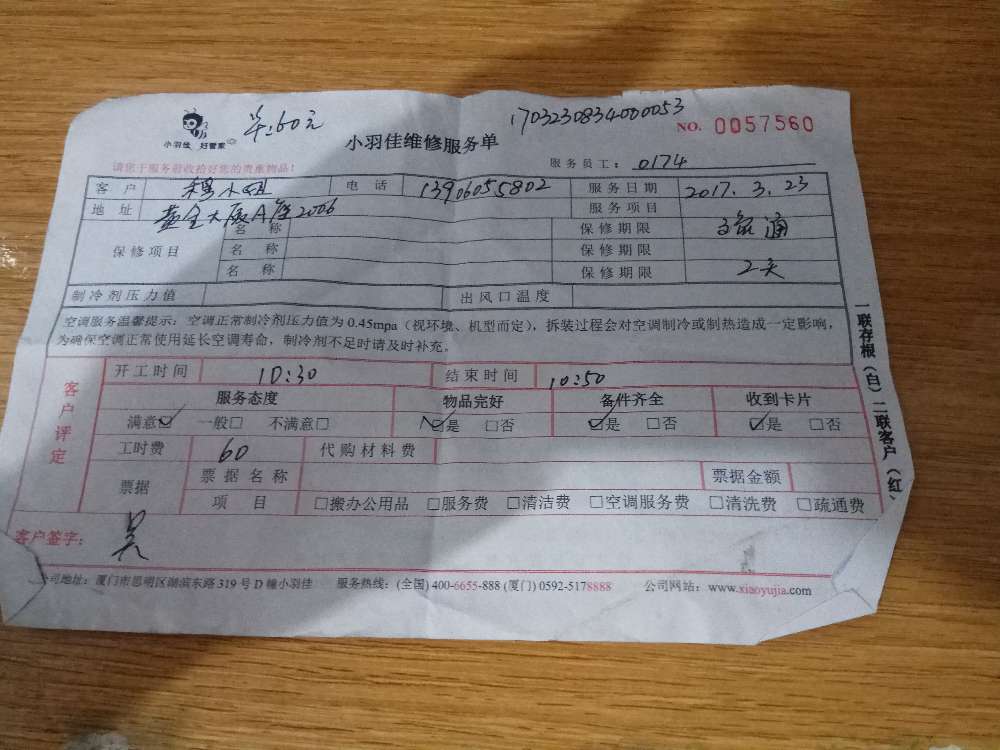 单:60元
17032308340000053
小羽佳 好管家
小羽佳维修服务单
NO. 0057560
请您于服务前收拾好您的贵重物品!
服务员工: 0174
客 户 穆小姐 电 话 13906055802 服务日期 2017.3.23
地 址 黄金大厦A座2006 服务项目
保修项目 名 称 保修期限 通
名 称 保修期限
名 称 保修期限 2天
制冷剂压力值 出风口温度
空调服务温馨提示:空调正常制冷剂压力值为0.45mpa(视环境、机型而定),拆装过程会对空调制冷或制热造成一定影响,
为确保空调正常使用延长空调寿命,制冷剂不足时请及时补充。
客户评定
开工时间 10:30 结束时间 10:50
服务态度 物品完好 备件齐全 收到卡片
满意☑ 一般□ 不满意□ ☑是 □否 ☑是 □否 ☑是 □否
工时费 60 代购材料费
票据 票据名称 票据金额
项 目 □搬办公用品 □服务费 □清洁费 □空调服务费 □清洗费 □疏通费
客户签字: 吴
公司地址:厦门市思明区湖滨东路319号D幢小羽佳 服务热线:(全国)400-6655-888 (厦门)0592-5178888 公司网站:www.xiaoyujia.com
一联存根(白)二联客户(红)